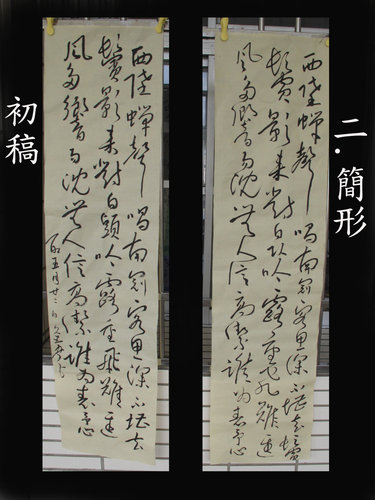 二.簡形
西陸蟬聲唱南冠客思深不堪玄鬢
鬢影來對白頭吟露重飛難進
風多響易沈無人信高潔誰為表予心
初稿
西陸蟬聲唱南冠客思深不堪玄
鬢影來對白頭吟露重飛難進
風多響易沈無人信高潔誰為表予心
五月廿二日